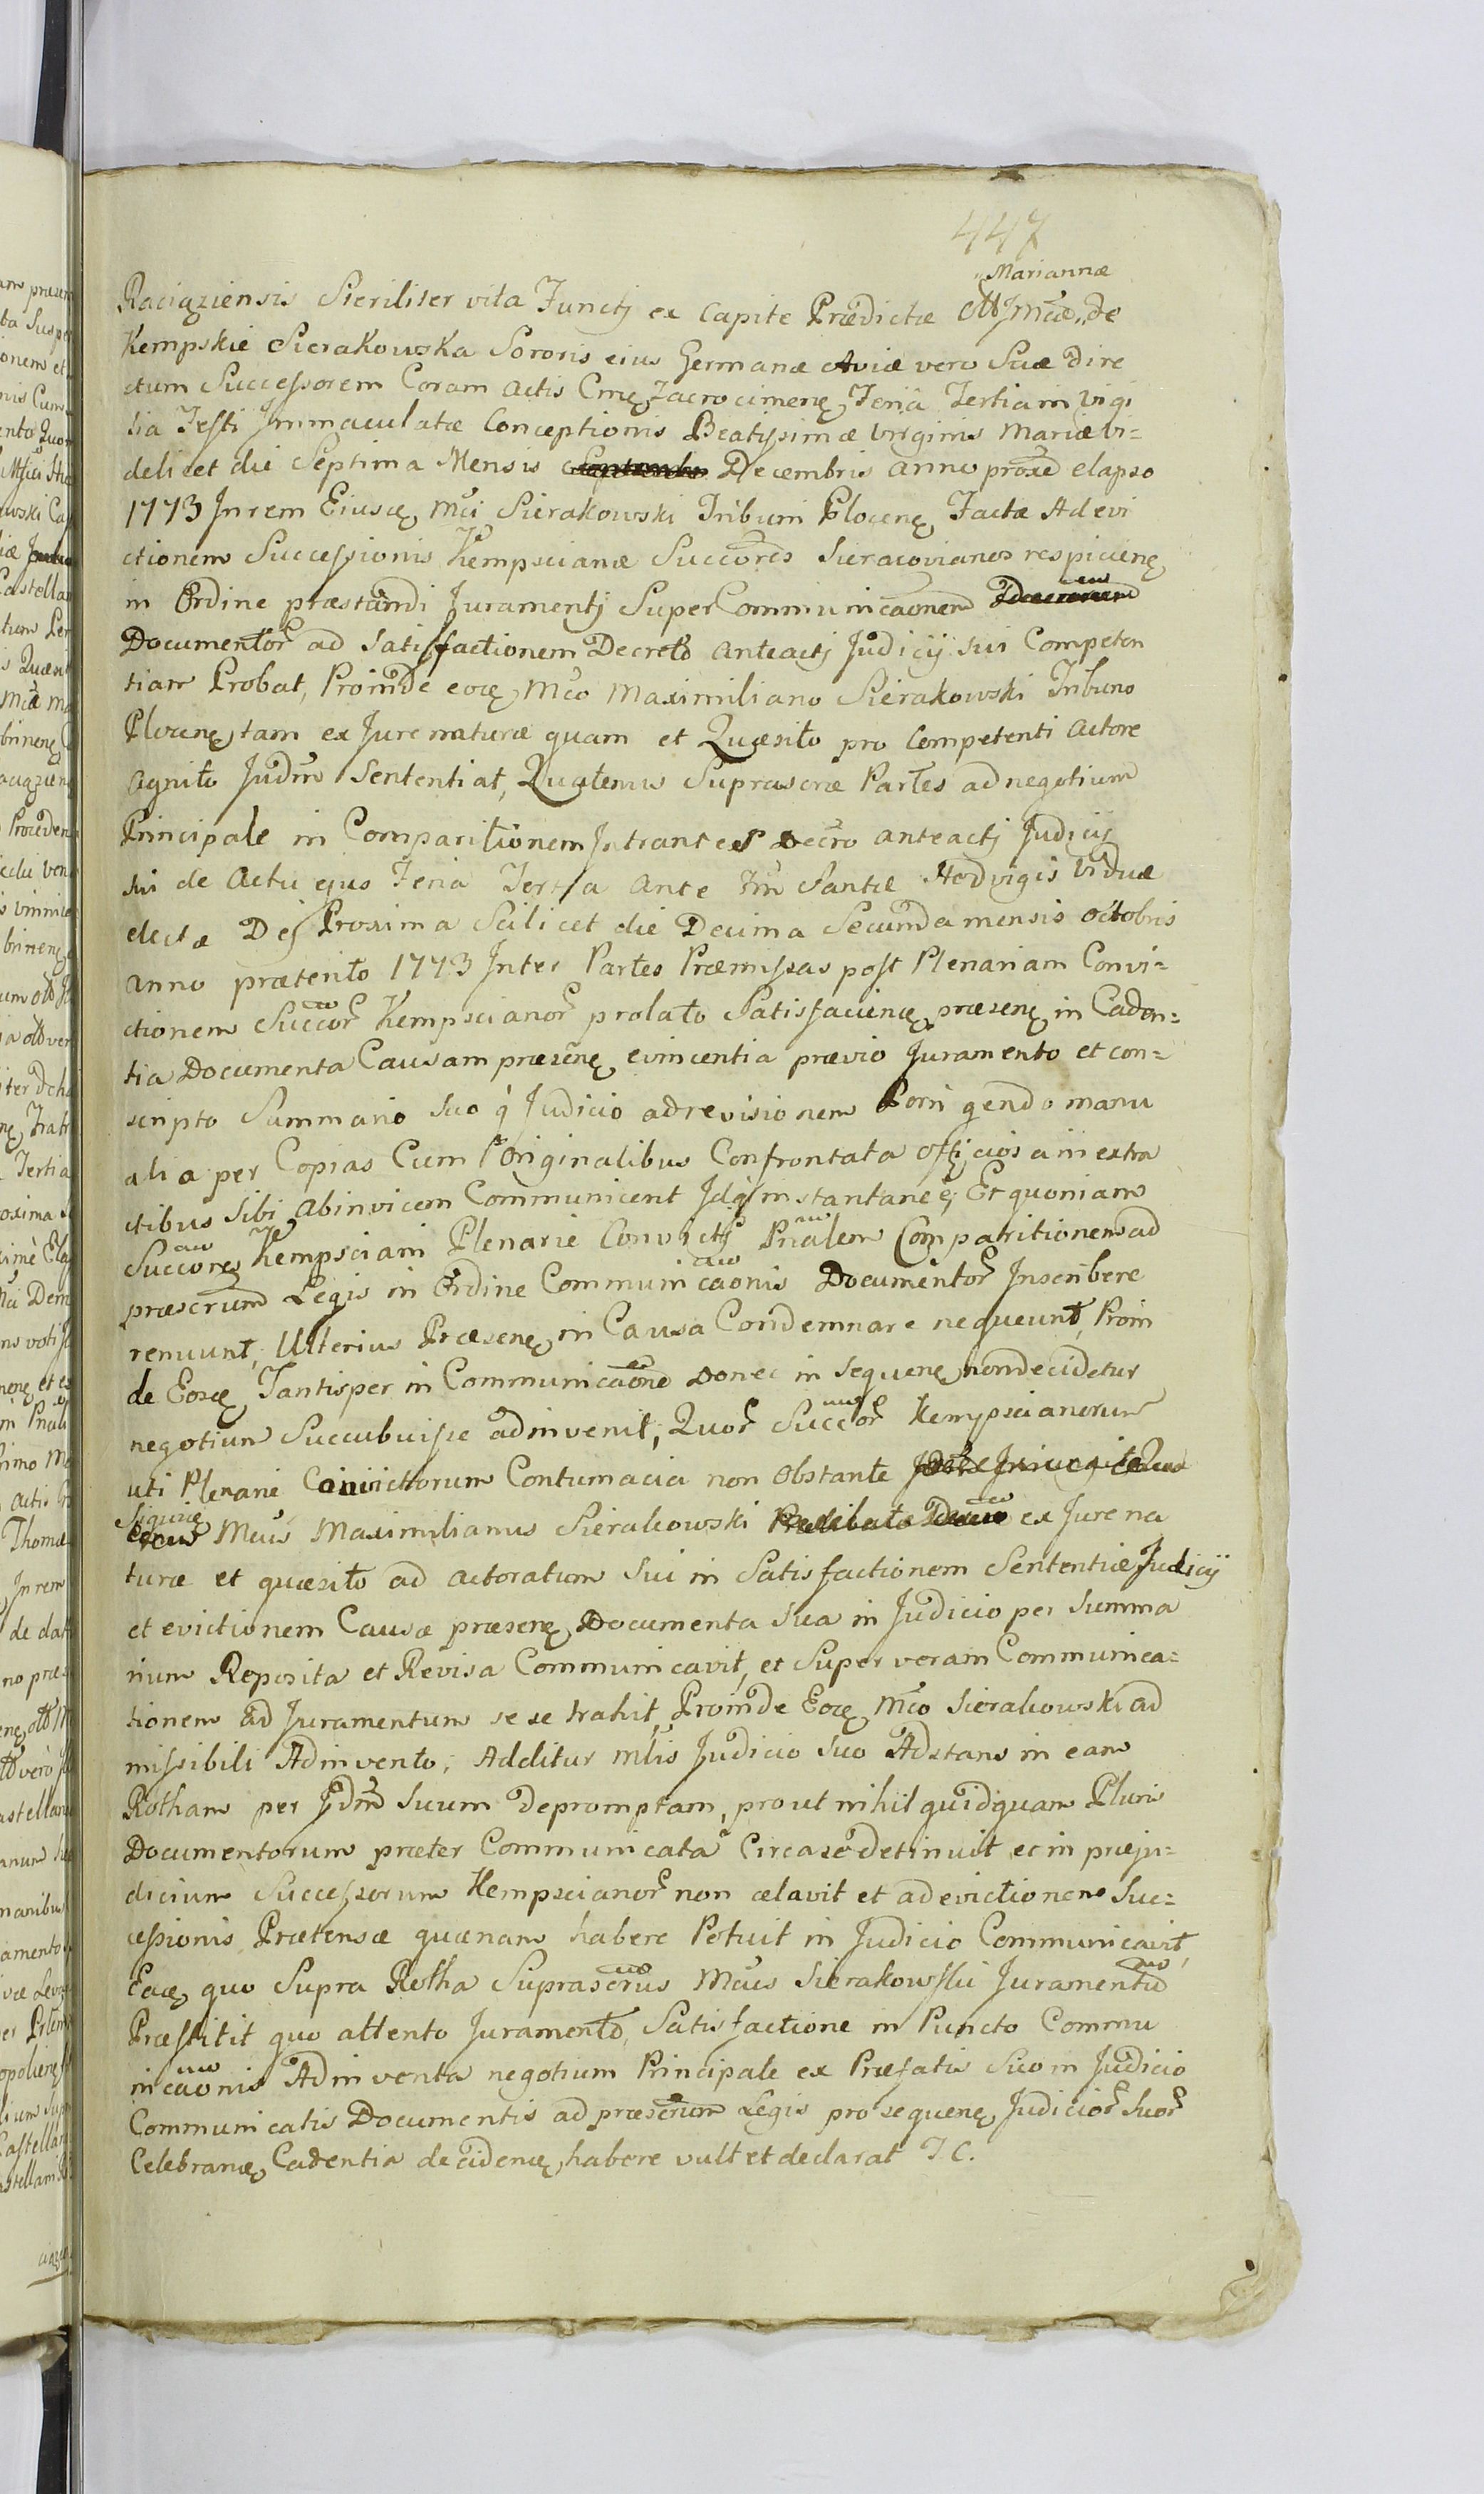 447
Mariannæ
Raciąziensis Steriliter vita Functj ex Capite Prædictæ M Jmcæ de
Kempskie Sierakowska Sororis eius Germanæ Aviæ vero Suæ dire
ctum Successorem Coram actis Cmę Zacrocimenę, Feria Tertia in Vigi
lia Festi Jmmaculatæ Conceptionis Beatissimæ Virginis Mariæ vi=
delicet die Septima Mensis Decembris anno proxe elapso
1773 Jnrem Eiusdę Mci Sierakowski Tribuni Plocenę, Factæ Ad evi
ctionem Successionis Kempscianæ Succores Sieracovianos respicienę
in Ordine præstandi Juramentj Super Communicaonem
Documentor ad Satisfactionem Decreto anteactj Judicij sui Competen
tiam Probat, Proinde eoę Mco Maximiliano Sierakowski Tribuno
Plocenę tam ex Jure naturæ quam et Quæsito pro Competenti actore
agnito Judm Sententiat, Quatenus Suprascræ Partes ad negotium
Principale in Comparitionem Jntrantes Decro anteactj Judicij
sui de actu ejus Feria Tertia ante Fm Santæ Hedvigis Viduæ
electæ Dej Proxima Scilicet die Decima Secunda mensis octobris
anno præterito 1773 Jnter Partes Præmissas post Plenariam Convi=
ctionem Succor Kempscianor prolato Satisfacienę præsenę in Caden=
tia Documenta Causam præsenę evincentia prævio Juramento et con=
scripto Summario suo q Judicio ad revisionem Porri gendo manu
alia per Copias Cum Originalibus Confrontata officiosa in extra
ctibus sibi abinvicem Communicent Jdq instantanee; Et quoniam
Succores Kempsciani Plenarie Convictj Pnalem Comparitionem ad
præscrum Legis in Ordine Communicaonis Documentor Jnscribere
renuunt, Ulterius Præsenę in Causa Condemnare nequeunt, Proin
de Eosę Tantisper in Communicaone donec in Sequenę non decidetur
negotium Succubuisse adinvenit, Quor Succor Kempscianorum
uti Plenarie Convictorum Contumacia non obstante
Siquidę Mcus Maximilianus Sierakowski ex Jure na
turæ et quæsito ad actoratum sui in Satisfactionem Sententiæ Judicij
et evictionem Causæ præsenę Documenta sua in Judicio per Summa
rium Reposita et Revisa Communicavit, et Super veram Communica=
tionem ad Juramentum se se trahit, Proinde Eoę Mco Sierakowski ad
missibili Adinvento, Additur mlis Judicio suo Adstans in eam
Rotham per Jdm Suum depromptam, prout nihil quidquam Pluri
Documentorum præter Communicata Circa se detinuit ec in præju=
dicium Successorum Kempscianor non celavit et ad evictionem Suc=
cessionis Prætensæ quænam habere Potuit in Judicio Communicavit,
Eaę quo Supra Rotha Suprascrus Mcus Sierakowski Juramentum
Præstitit quo attento Juramento, Satisfactione in Puncto Commu
nicaonis Adinventa negotium Principale ex Præfatis Suo in Judicio
Communicatis Documentis ad præscrum Legis pro sequenę Judicior Suor
Celebranę Cadentia decidenę habere vult et declarat J. C.